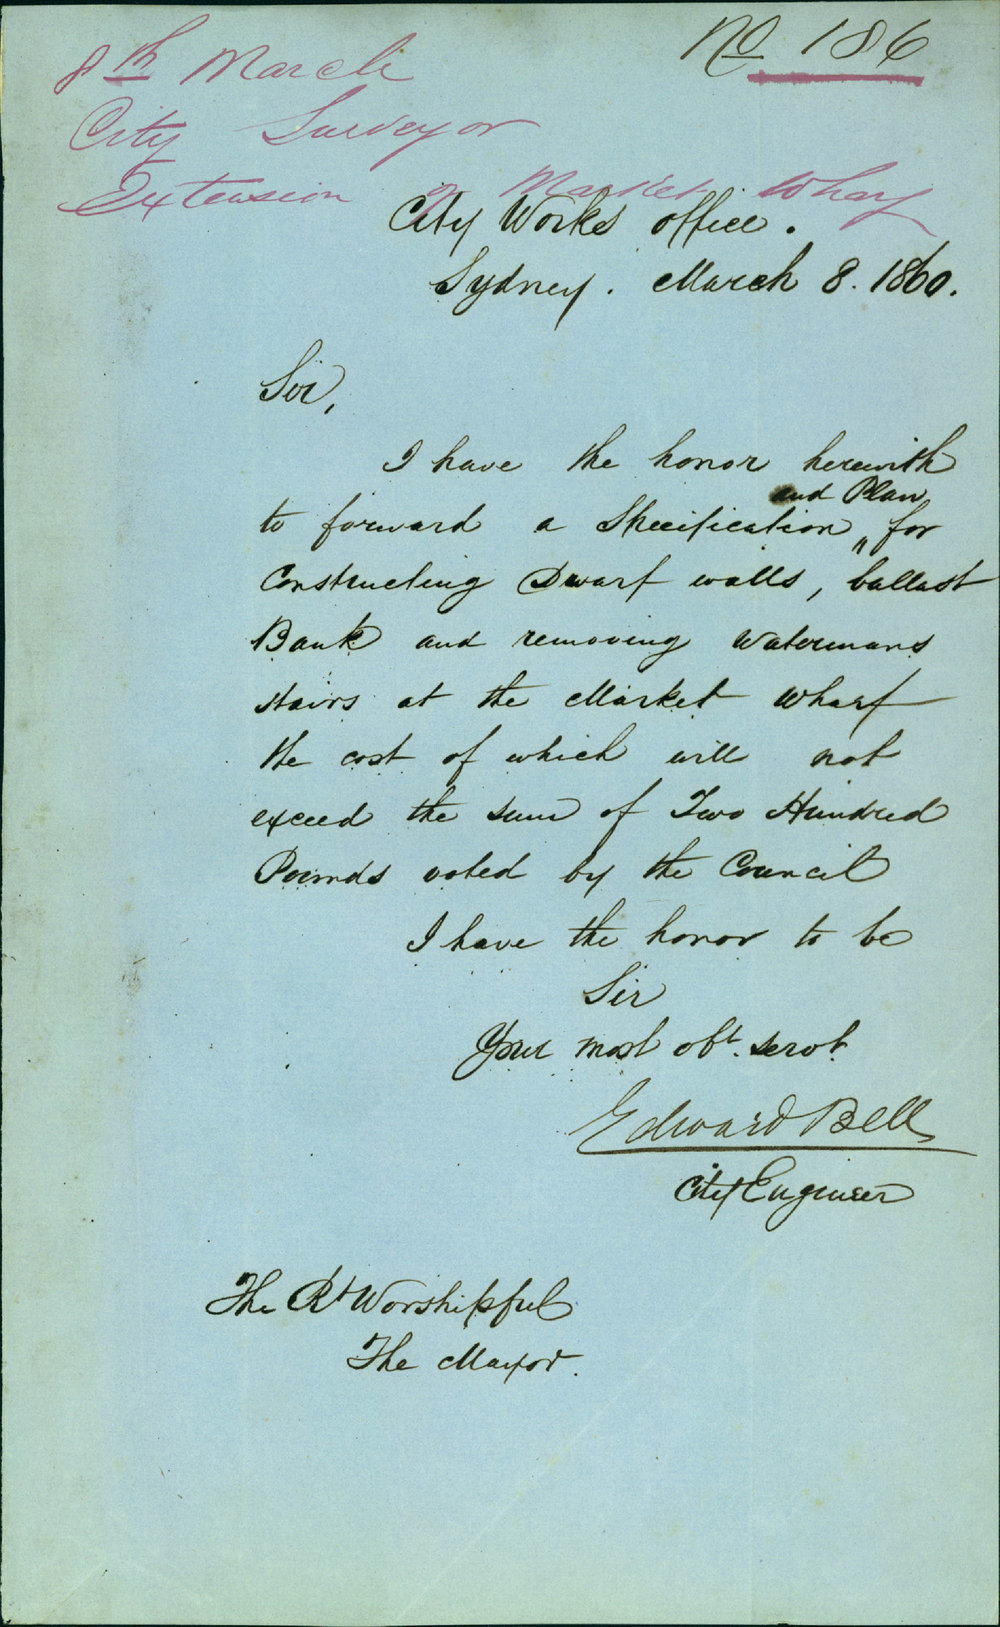 No 186
8th March
City Surveyor
Extension of Market Wharf
City Works office.
Sydney. March 8. 1860.
Sir,
I have the honor herewith
and Plan
to forward a Specification " for
Constructing Dwarf walls, ballast
Bank and removing Watermans
stairs at the Market Wharf
the cost of which will not
exceed the sum of Two Hundred
Pounds voted by the Council
I have the honor to be
Sir
Your most obt. servt.
Edward Bell
City Engineer
The Rt Worshipful
The Mayor.